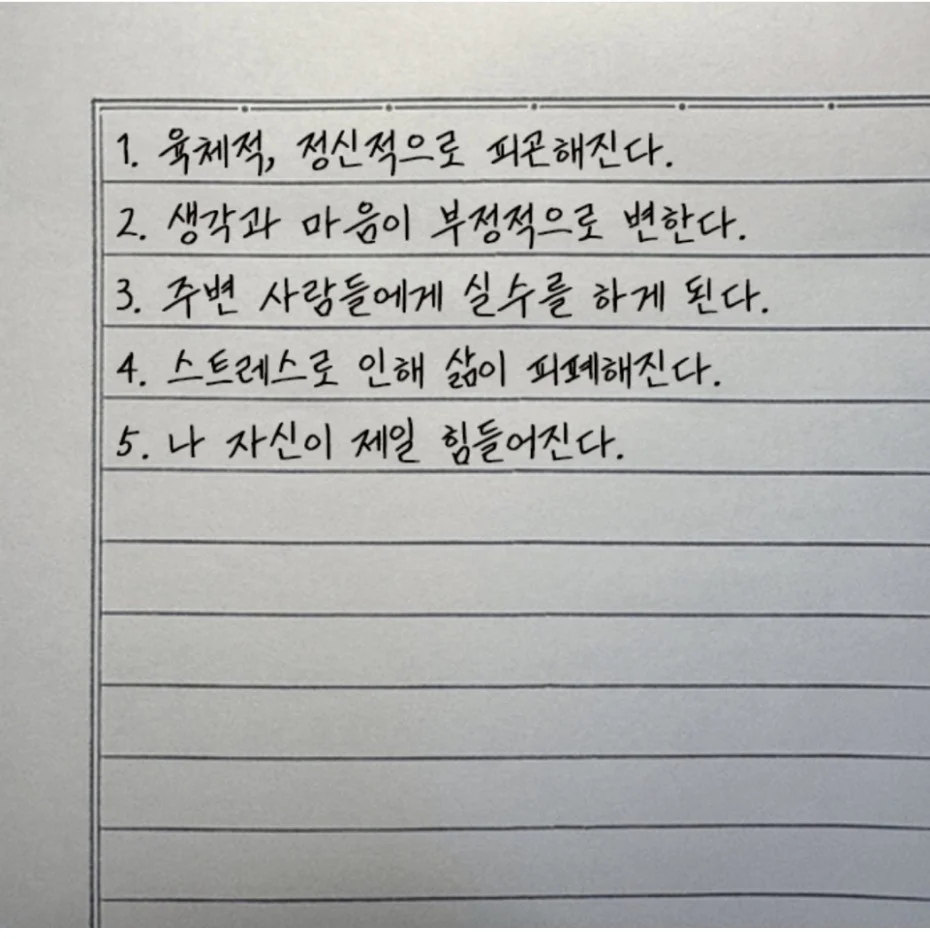 1. 육체적, 정신적으로 피곤해진다.
2. 생각과 마음이 부정적으로 변한다.
3. 주변 사람들에게 실수를 하게 된다.
4. 스트레스로 인해 삶이 피폐해진다.
5. 나 자신이 제일 힘들어진다.